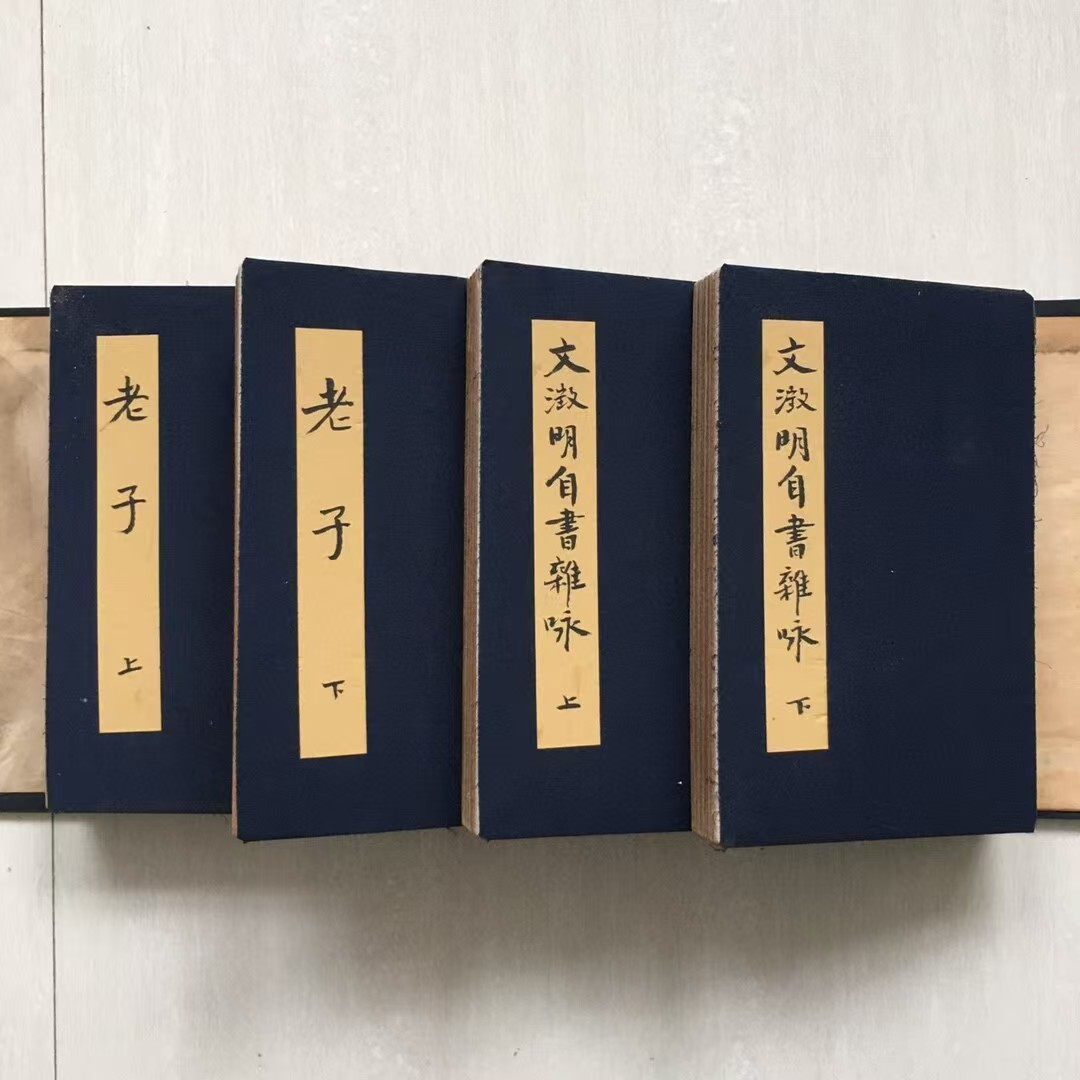 老子 上
老子 下
文澂明自書雜咏 上
文澂明自書雜咏 下